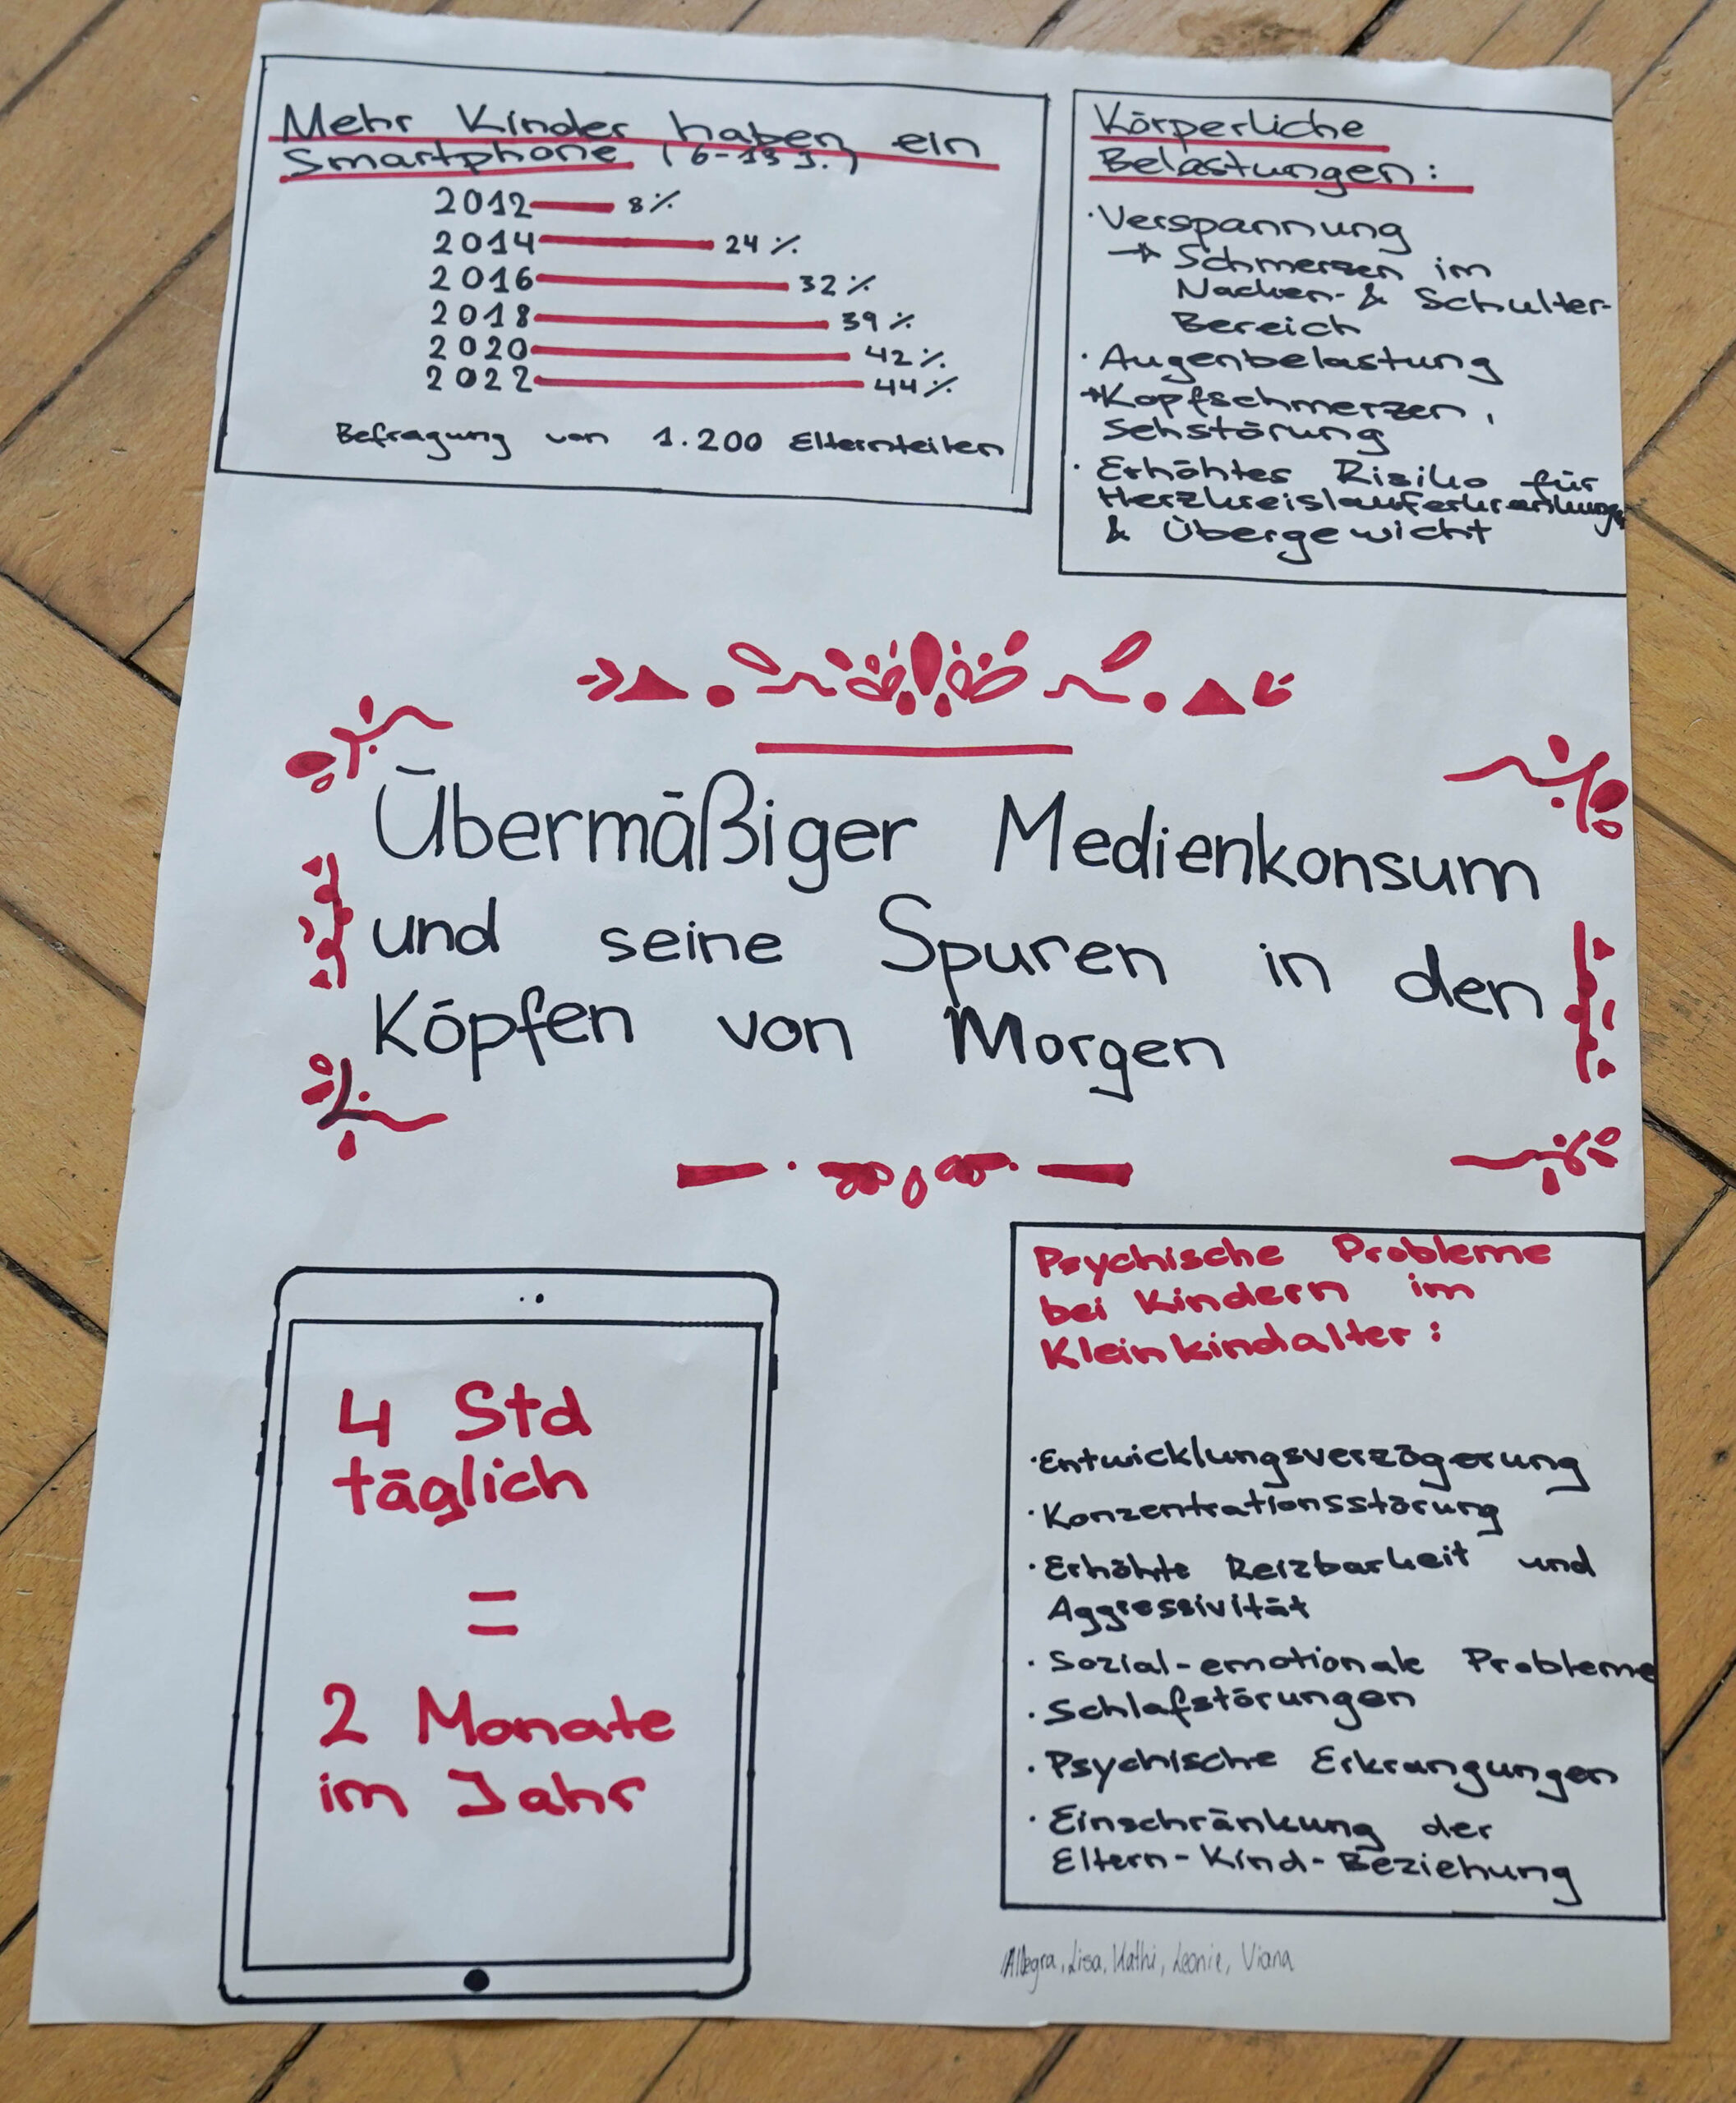 Mehr Kinder haben ein
Smartphone (6-13 J.)
2012 8%
2014 24%
2016 32%
2018 39%
2020 42%
2022 44%
Befragung von 1.200 Elternteilen
Körperliche
Belastungen:
·Verspannung
→ Schmerzen im
Nacken- & Schulter-
Bereich
· Augenbelastung
→Kopfschmerzen,
Sehstörung
· Erhöhtes Risiko für
Herzkreislauferkrankungen
& Übergewicht
Übermäßiger Medienkonsum
und seine Spuren in den
Köpfen von Morgen
4 Std
täglich
=
2 Monate
im Jahr
Psychische Probleme
bei Kindern im
Kleinkindalter:
·Entwicklungsverzögerung
·Konzentrationsstörung
·Erhöhte Reizbarkeit und
Aggressivität
· Sozial-emotionale Probleme
· Schlafstörungen
· Psychische Erkrangungen
· Einschränkung der
Eltern-Kind-Beziehung
Allegra, Lisa, Kathi, Leonie, Viana